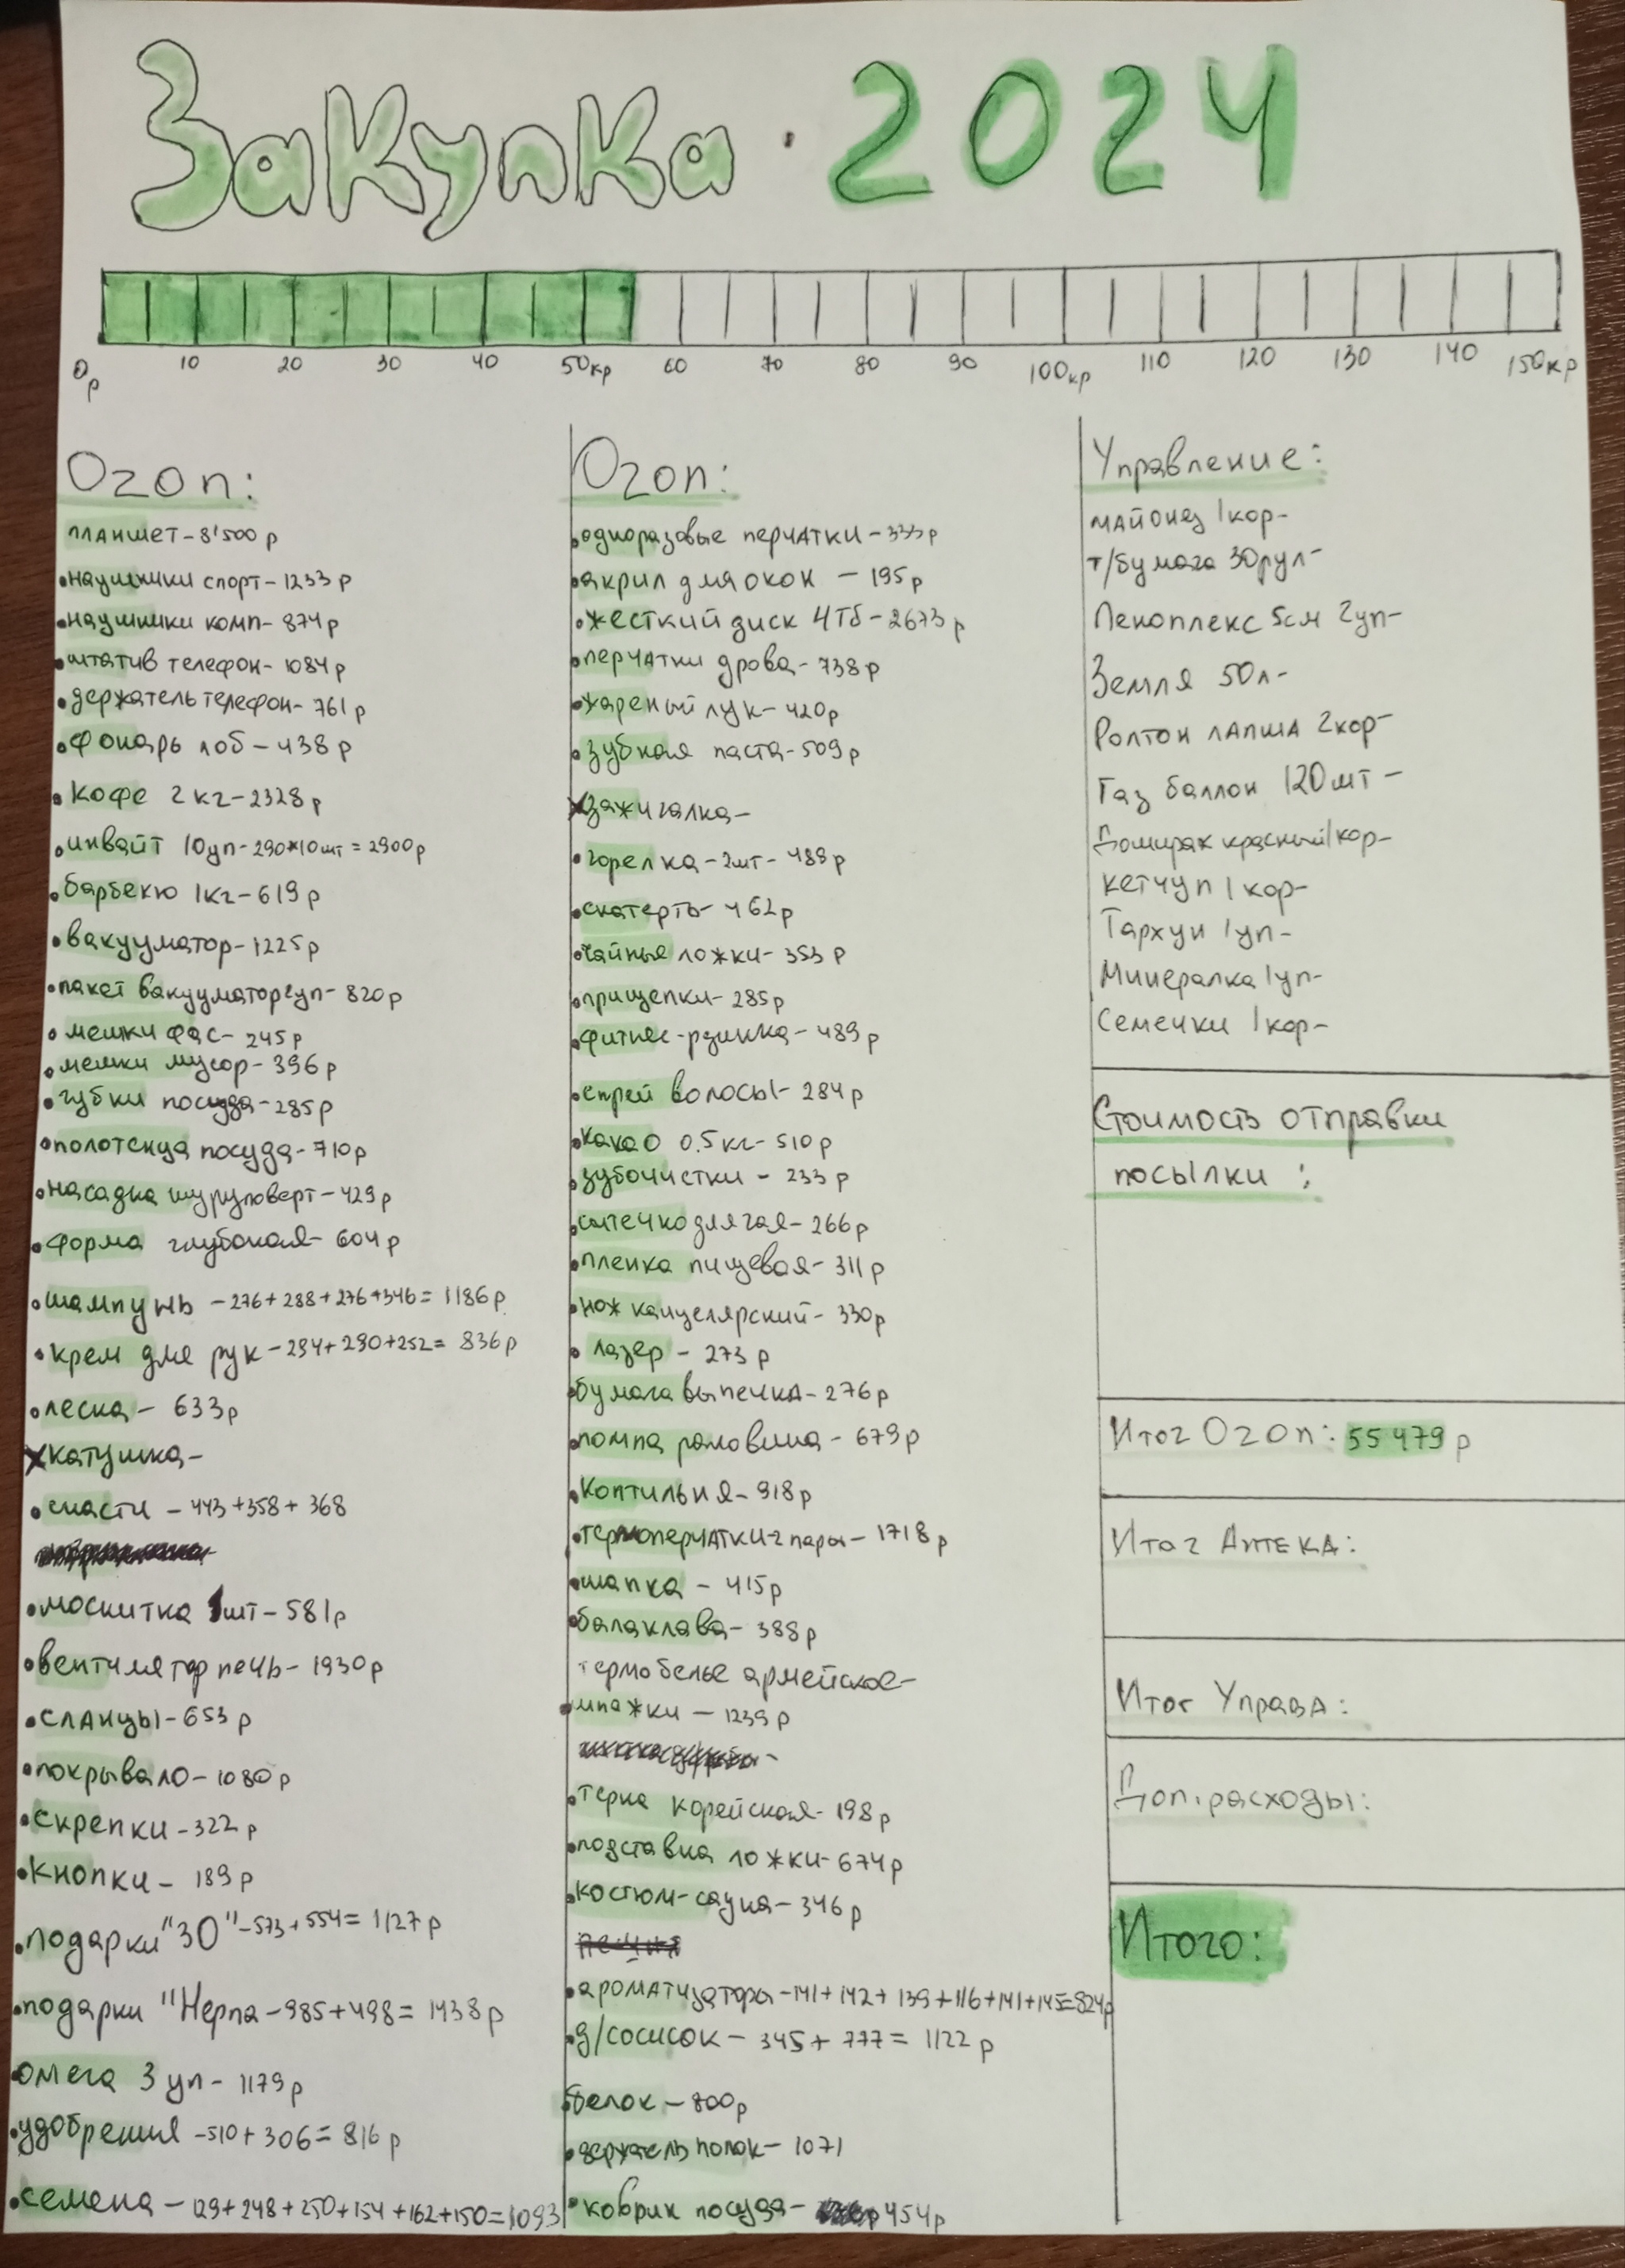 Закупка · 2024
0р 10 20 30 40 50кр 60 70 80 90 100кр 110 120 130 140 150кр
Ozon:
планшет - 8'500 р
• наушники спорт - 1233 р
• наушники комп - 874 р
• штатив телефон - 1084 р
• держатель телефон - 761 р
• фонарь лоб - 438 р
• кофе 2 кг - 2328 р
• инвайт 10уп - 290*10шт = 2900 р
• барбекю 1кг - 619 р
• вакууматор - 1225 р
• пакет вакууматор 2уп - 820 р
• мешки фас - 245 р
• мешки мусор - 396 р
• губки посуда - 285 р
• полотенца посуда - 710 р
• насадка шуруповерт - 429 р
• форма глубокая - 604 р
• шампунь - 276 + 288 + 276 + 346 = 1186 р.
• крем для рук - 294 + 290 + 252 = 836 р
• леска - 633 р
х катушка -
• снасти - 443 + 358 + 368
• москитка 1шт - 581 р
• вентилятор печь - 1930 р
• сланцы - 653 р
• покрывало - 1080 р
• скрепки - 322 р
• кнопки - 189 р
• подарки "30" - 573 + 554 = 1127 р
• подарки "Нерпа - 985 + 498 = 1438 р
• омега 3 уп - 1179 р
• удобрения - 510 + 306 = 816 р
• семена - 129 + 248 + 250 + 154 + 162 + 150 = 1093
Ozon:
• одноразовые перчатки - 333 р
• акрил для окон - 195 р
• жесткий диск 4Тб - 2673 р
• перчатки дрова - 738 р
• жареный лук - 420 р
• зубная паста - 509 р
х зажигалка -
• горелка - 2шт - 489 р
• скатерть - 462 р
• чайные ложки - 353 р
• прищепки - 285 р
• фитнес-рзинка - 489 р
• спрей волосы - 284 р
• какао 0.5 кг - 510 р
• зубочистки - 233 р
• ситечко для чая - 266 р
• пленка пищевая - 311 р
• нож канцелярский - 330 р
• лазер - 273 р
• бумага выпечка - 276 р
• помпа раковина - 679 р
• коптильня - 918 р
• термоперчатки - 2 пары - 1718 р
• шапка - 415 р
• балаклава - 388 р
термобелье армейское -
• шпажки - 1239 р
• терка корейская - 198 р
• подставка ложки - 674 р
• костюм-сауна - 346 р
• ароматизаторы - 141 + 142 + 139 + 116 + 141 + 145 = 824 р
• д/сосисок - 345 + 777 = 1122 р
• белок - 800 р
• держатель полок - 1071
• коврик посуда - 454 р
Управление:
майонез 1кор -
т/бумага 30рул -
Пеноплекс 5см 2уп -
Земля 50л -
Ролтон лапша 2кор -
Газ баллон 120шт -
Доширак красный 1кор -
кетчуп 1 кор -
Тархун 1уп -
Минералка 1уп -
Семечки 1кор -
Стоимость отправки
посылки :
Итог Ozon: 55 479 р
Итог Аптека:
Итог Управа:
Доп. расходы:
Итого: